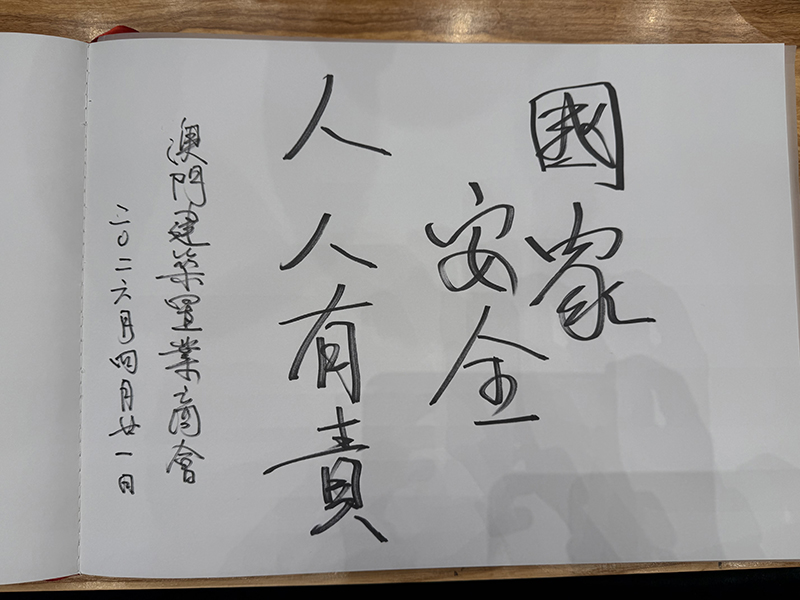 國家
安全
人人有責
澳門建築置業商會
二〇二六月四月廿一日